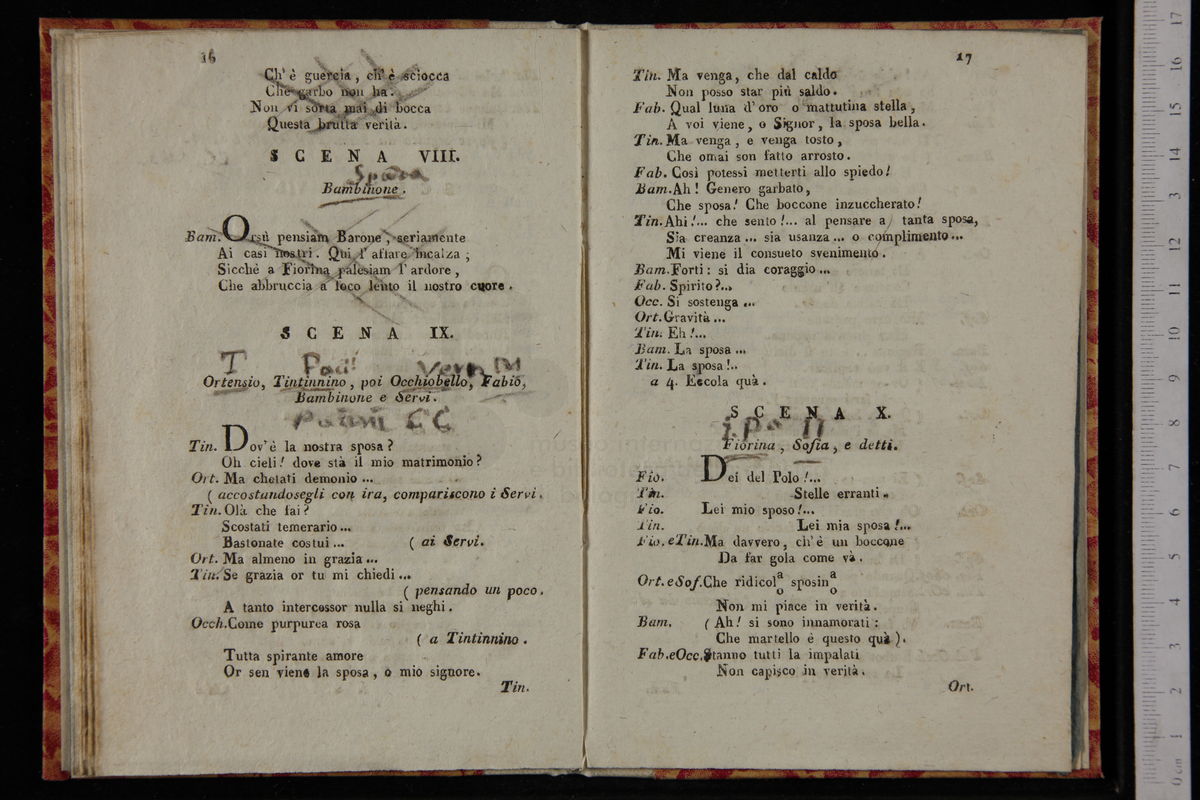 16
Ch' è guercia, ch' è sciocca
Che garbo non ha.
Non vi sorta mai di bocca
Questa brutta verità.
SCENA VIII.
Bambinone.
Bam. Orsù pensiam Barone, seriamente
Ai casi nostri. Qui l' affare incalza;
Sicchè a Fiorina palesiam l' ardore,
Che abbruccia a loco lento il nostro cuore.
SCENA IX.
T
Ortensio, Tintinnino, poi Occhiobello, Fabio,
Bambinone e Servi.
Tin. Dov' è la nostra sposa?
Oh cieli! dove stà il mio matrimonio?
Ort. Ma chetati demonio ...
( accostandosegli con ira, compariscono i Servi.
Tin. Olà che fai?
Scostati temerario ...
Bastonate costui ... ( ai Servi.
Ort. Ma almeno in grazia ...
Tin. Se grazia or tu mi chiedi ...
( pensando un poco.
A tanto intercessor nulla si neghi.
Occh. Come purpurea rosa
( a Tintinnino.
Tutta spirante amore
Or sen viene la sposa, o mio signore.
Tin.
17
Tin. Ma venga, che dal caldo
Non posso star più saldo.
Fab. Qual luna d' oro o mattutina stella,
A voi viene, o Signor, la sposa bella.
Tin. Ma venga, e venga tosto,
Che omai son fatto arrosto.
Fab. Così potessi metterti allo spiedo!
Bam. Ah! Genero garbato,
Che sposa! Che boccone inzuccherato!
Tin. Ahi!... che sento!... al pensare a tanta sposa,
Sia creanza ... sia usanza ... o complimento ...
Mi viene il consueto svenimento.
Bam. Forti: si dia coraggio ...
Fab. Spirito?...
Occ. Si sostenga ...
Ort. Gravità ...
Tin. Eh!...
Bam. La sposa ...
Tin. La sposa!..
a 4. Eccola quà.
SCENA X.
Fiorina, Sofia, e detti.
Fio. Dei del Polo!...
Tin. Stelle erranti ..
Fio. Lei mio sposo!...
Tin. Lei mia sposa!...
Fio. e Tin. Ma davvero, ch' è un boccone
Da far gola come và.
Ort. e Sof. Che ridicol a o sposin a o
Non mi piace in verità.
Bam. ( Ah! si sono innamorati:
Che martello è questo quà ).
Fab. e Occ. Stanno tutti la impalati
Non capisco in verità.
Ort.